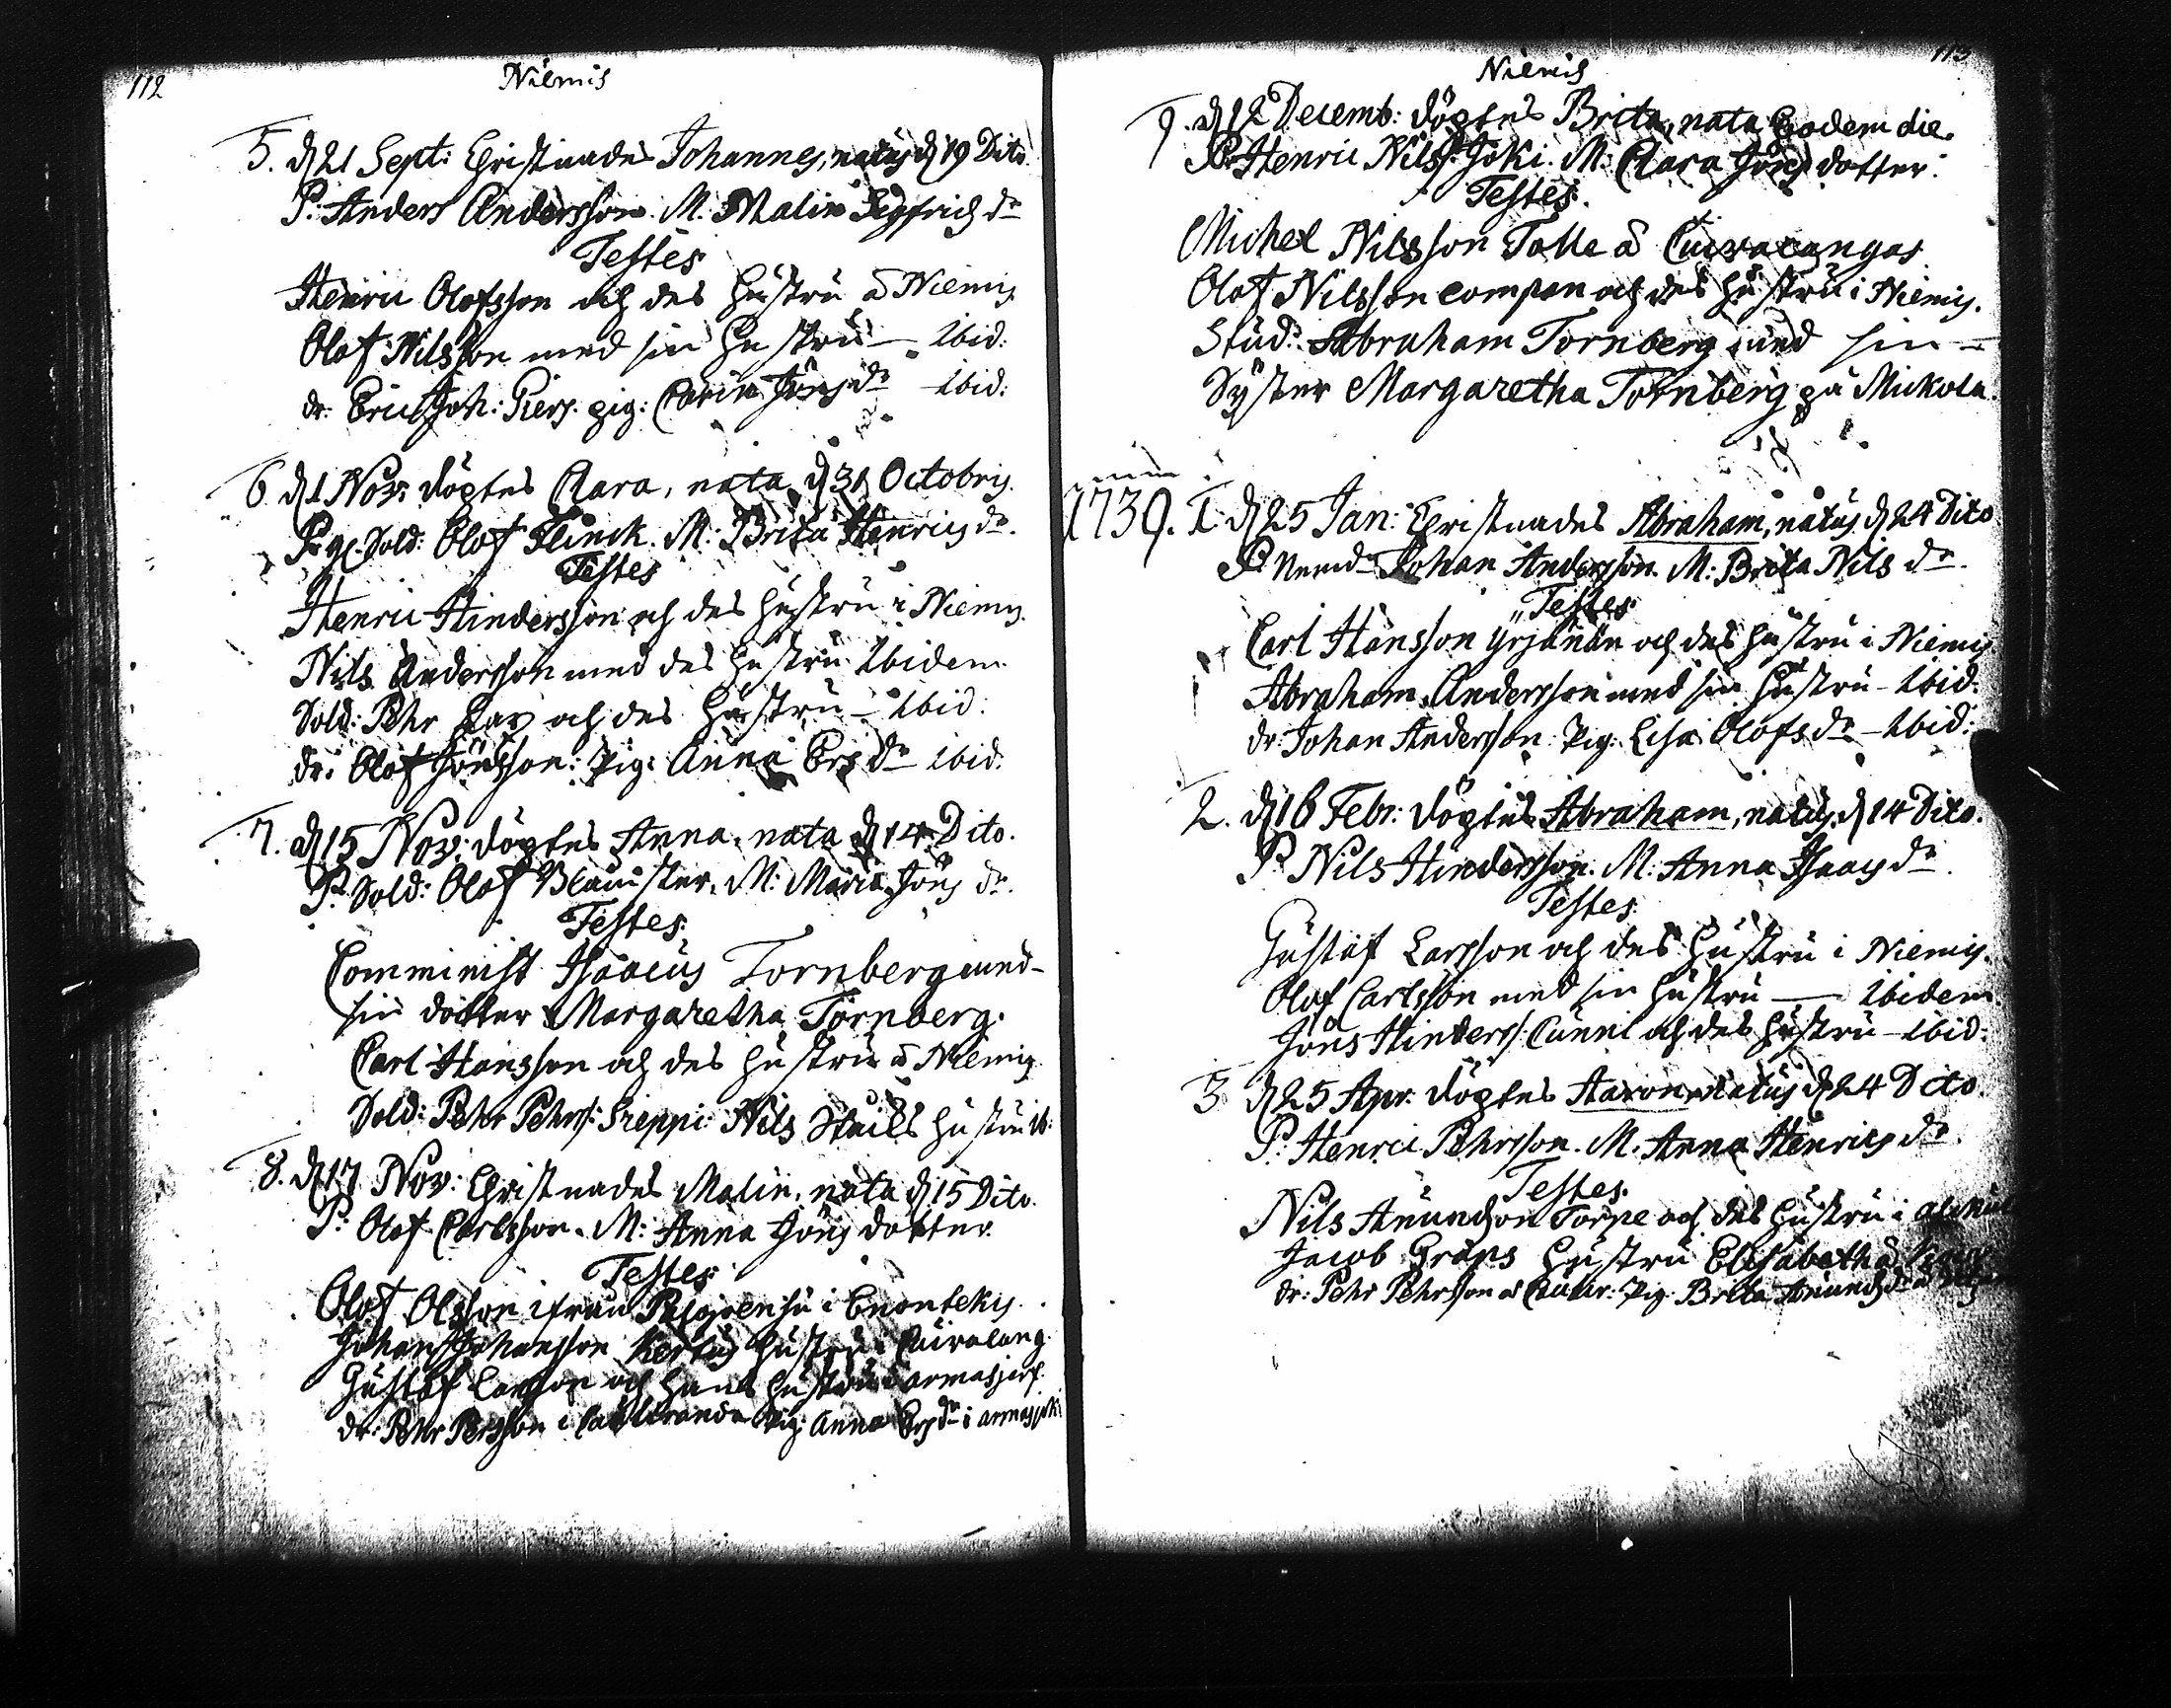 112
Niemis
5. d 21 Sept: Christnades Johannes, natus d 19 Dito.
P: Anders Andersson. M. Malin Sigfrids dr
Testes
Henric Olofsson och des hustru å Niemis
Olof Nilsson med sin hustru — Ibid:
dr: Eric Joh: Piers. pig: Carin Jöns dr — Ibid:
6. d 1 Nov: döptes Clara, nata d 31 Octobris.
P. gl. Sold: Olof Flinck. M: Brita Henrics dr.
Testes
Henric Hindersson och des hustru i Niemis.
Nils Andersson med des hustru Ibidem
Sold: Pehr och des hustru — Ibid:
dr: Olof Jönsson: Pig: Anna Ers dr ibid:
7. d 15 Nov: döptes Anna, nata d 14 Dito.
P. Sold: Olof Blamster. M: Maria Jöns dr.
Testes.
Comminist Isaacus Tornberg med-
sin dotter Margaretha Tornberg.
Carl Hansson och des hustru å Niemis
Sold: Pehr Pehrs: Greppi: Nils hustru ib:
8. d 17 Nov: Christnades Malin, nata d 15 Dito.
P: Olof Carlsson. M: Anna Jöns dotter.
Testes.
Olof Olsson ifrån i Enontekis.
Johan Johansson hustru i Cuivalang.
Gustaf Larsson och hans hustru i armasjerf.
dr: Pehr Persson i Pig: Anna Ers dr i armasjoki
113
Niemis
9. d 12 Decemb: döptes Brita, nata Eodem die.
P. Henric Nilss: Joki. M: Clara Jöns dotter.
Testes.
Michel Nilsson Talle å Cuivacangas
Olof Nilsson compan och des hustru i Niemis.
Stud: Abraham Tornberg med sin —
Syster Margaretha Tornberg på Mickola.
1739. 1. d 25 Jan: Christnades Abraham, natus d 24 Dito
P. Nemd Johan Andersson. M: Brita Nils dr.
Testes
Carl Hansson Yrjänän och des hustru i Niemis
Abraham Andersson med sin hustru — Ibid:
dr: Johan Andersson. Pig: Lisa Olofs dr — Ibid:
2. d 16 Febr: döptes Abraham, natus d 14 Dito.
P. Nils Hindersson. M: Anna Isaacs dr.
Testes
Gustaf Larsson och des hustru i Niemis.
Olof Carlsson med sin hustru — Ibidem
Jöns Hinders: Cunni och des hustru — Ibid:
3 d 25 Apr: döptes Aaron, natus d 24 Dito.
P: Henric Pehrsson. M. Anna Henrics dr.
Testes.
Nils Amundson Torpe och des hustru i
Jacob Graps hustru Elisabeth å
dr: Pehr Pehrsson å Pig: Brita Amunds dr